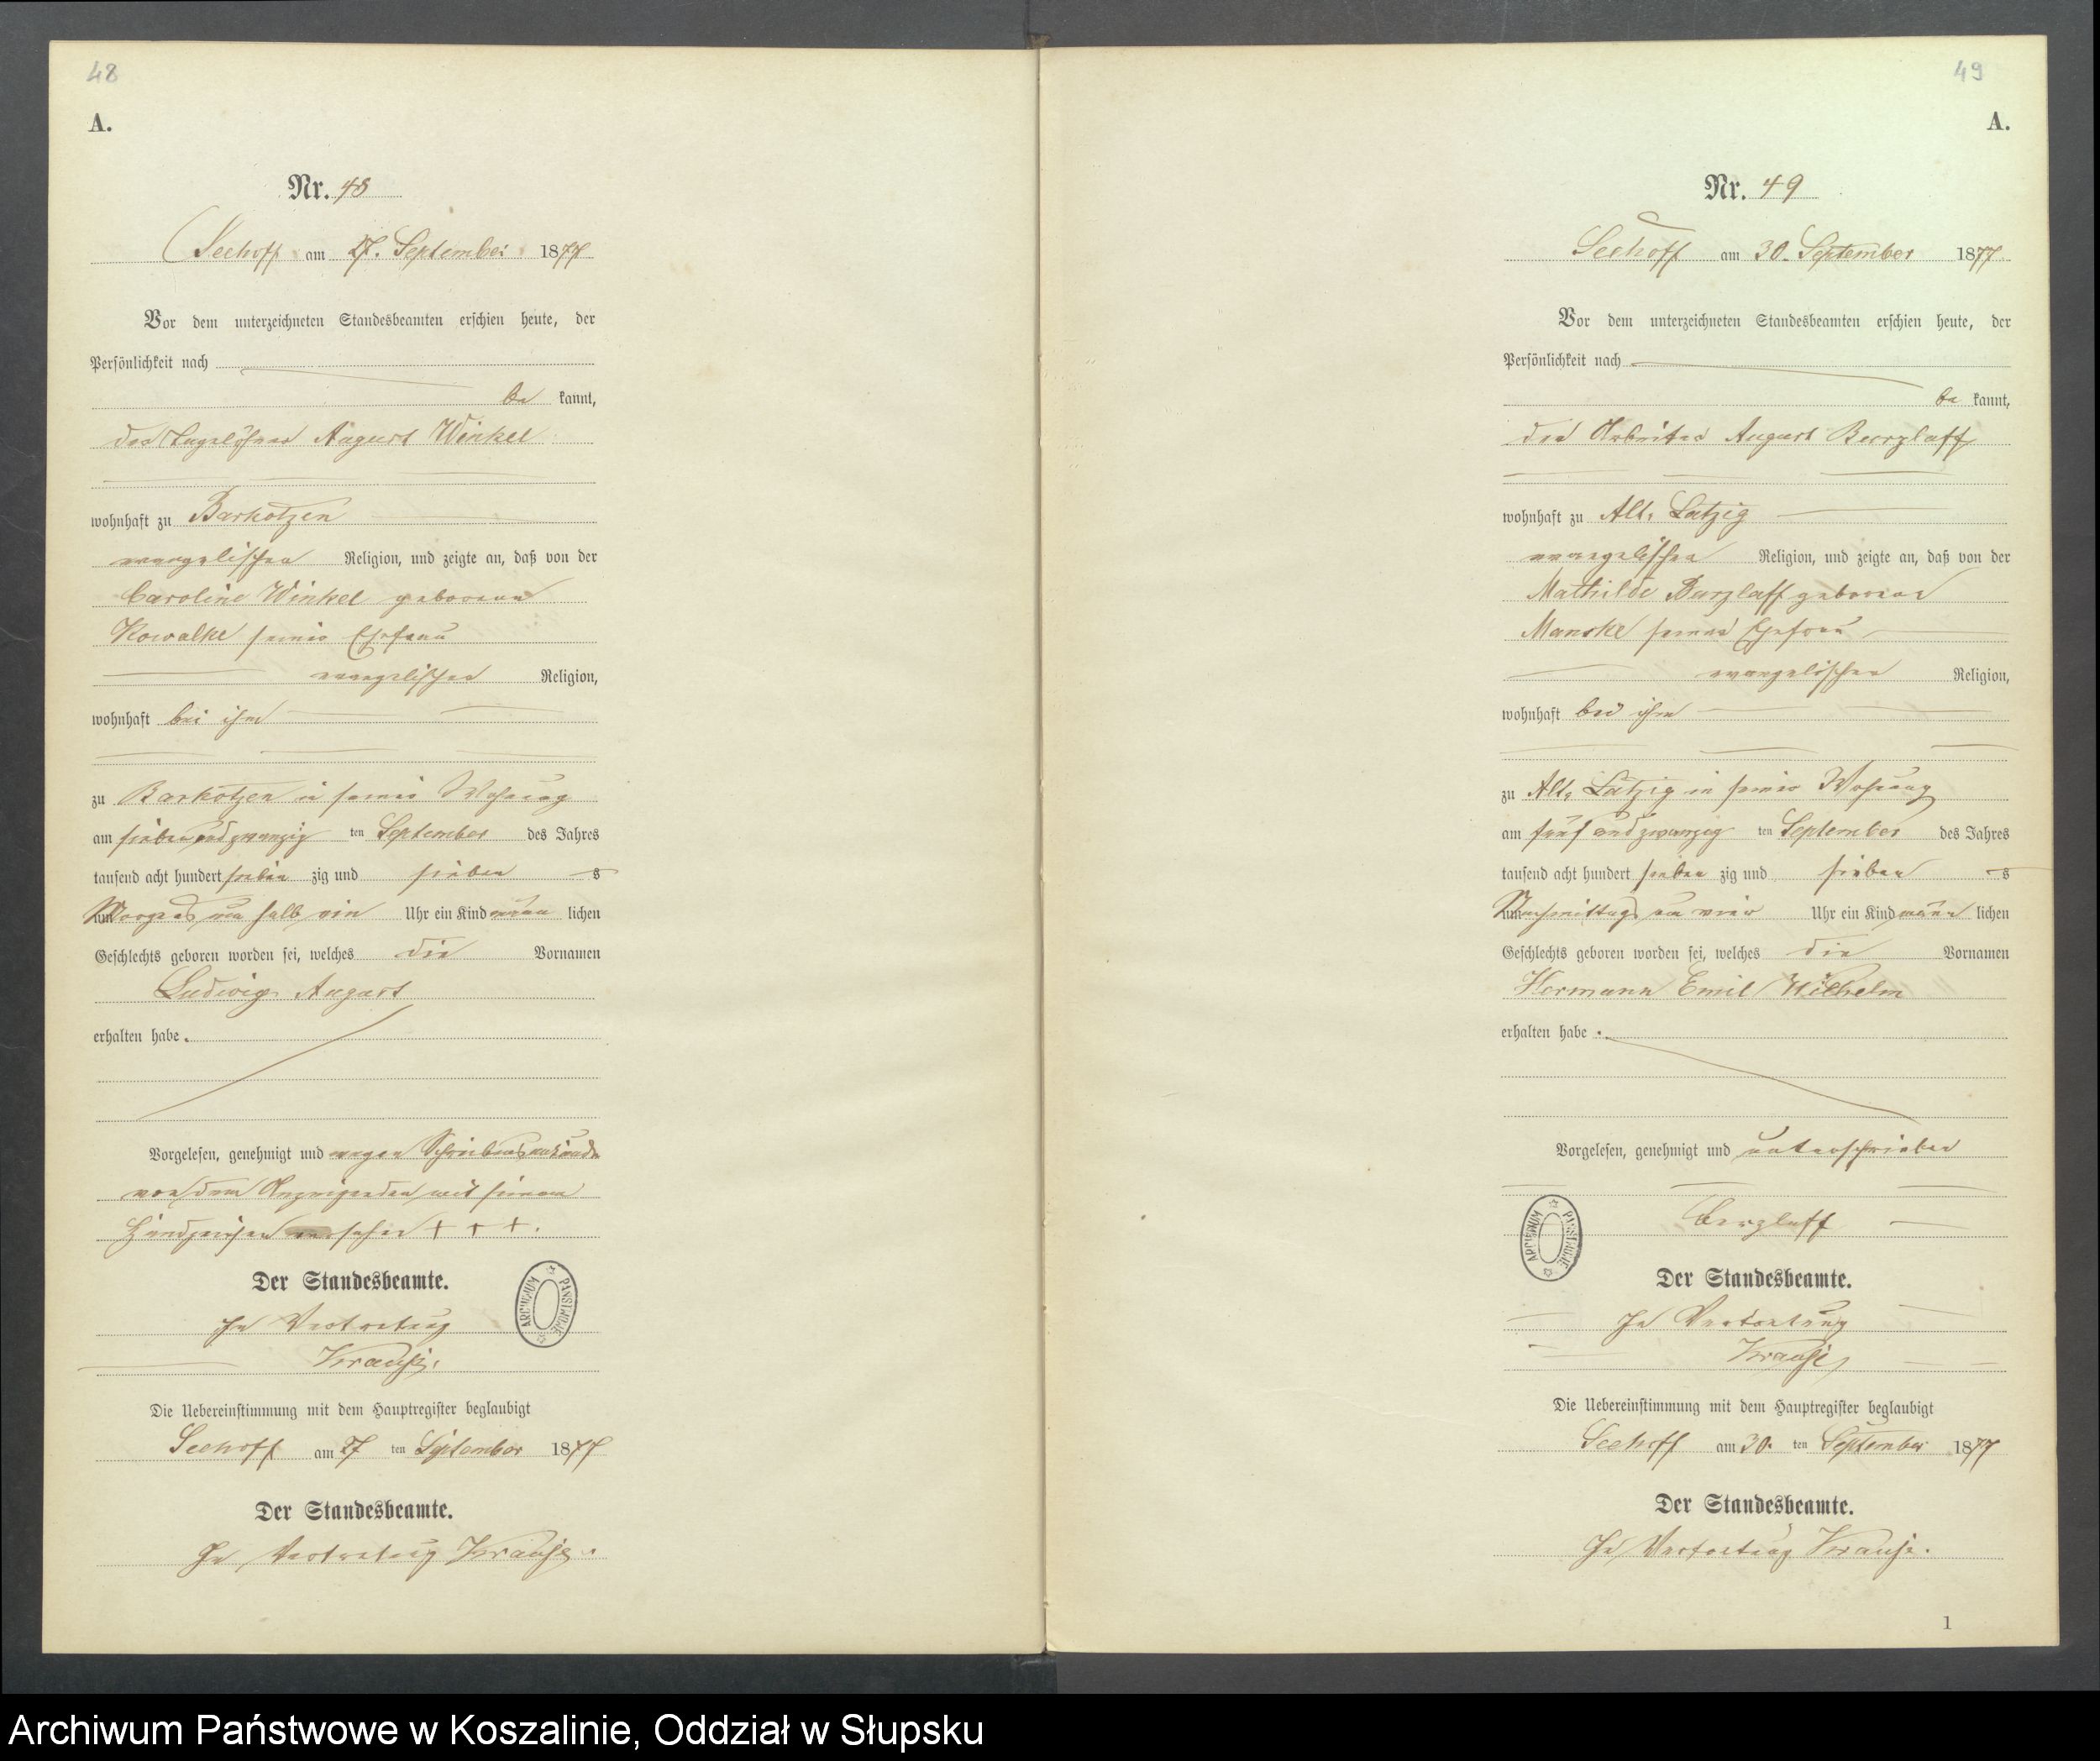 48
A.
Nr. 48
Seehoff am 27. September 1877
Vor dem unterzeichneten Standesbeamten erschien heute, der
Persönlichkeit nach
be kannt,
der Tagelöhner August Winkel
wohnhaft zu Barkotzen
evangelischer Religion, und zeigte an, daß von der
Caroline Winkel geborene
Kowalke seiner Ehefrau
evangelischer Religion,
wohnhaft bei ihm
zu Barkotzen in seiner Wohnung
am sieben und zwanzig ten September des Jahres
tausend acht hundert sieben zig und sieben s
Morgens um halb ein Uhr ein Kind männ lichen
Geschlechts geboren worden sei, welches die Vornamen
Ludwig August
erhalten habe.
Vorgelesen, genehmigt und wegen Schreibensunkunde
von dem Anzeigenden mit seinem
Handzeichen versehen + + +.
Der Standesbeamte.
In Vertretung
Krause.
Die Uebereinstimmung mit dem Hauptregister beglaubigt
Seehoff am 27 ten September 1877
Der Standesbeamte.
In Vertretung Krause.
ARCHIWUM PAŃSTWOWE
49
A.
Nr. 49
Seehoff am 30. September 1877
Vor dem unterzeichneten Standesbeamten erschien heute, der
Persönlichkeit nach
be kannt,
der Arbeiter August Barzlaff
wohnhaft zu Alt, Latzig
evangelischer Religion, und zeigte an, daß von der
Mathilde Barzlaff geborene
Manske seiner Ehefrau
evangelischer Religion,
wohnhaft bei ihm
zu Alt, Latzig in seiner Wohnung
am fünf und zwanzig ten September des Jahres
tausend acht hundert sieben zig und sieben s
Nachmittags um vier Uhr ein Kind männ lichen
Geschlechts geboren worden sei, welches die Vornamen
Hermann Emil Wilhelm
erhalten habe.
Vorgelesen, genehmigt und unterschrieben
Barzlaff
ARCHIWUM PAŃSTWOWE
Der Standesbeamte.
In Vertretung
Krause
Die Uebereinstimmung mit dem Hauptregister beglaubigt
Seehoff am 30. ten September 1877
Der Standesbeamte.
In Vertretung Krause.
1
Archiwum Państwowe w Koszalinie, Oddział w Słupsku